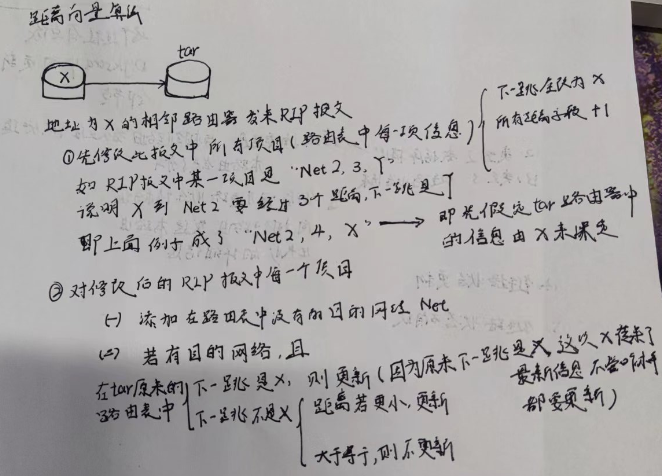 距离向量算法
X
tar
地址为X的相邻路由器发来RIP报文
①先修改此报文中所有项目(路由表中每一项信息)
下一跳全改为X
所有距离字段+1
如RIP报文中某一项目是“Net2, 3, Y”
说明X到Net2要经过3个距离,下一跳是Y
即上面例子成了“Net2, 4, X”
即先假定tar路由器中
的信息由X来决定
②对修改后的RIP报文中每一个项目
(一) 添加在路由表中没有的目的网络Net
(二) 若有目的网络,且
在tar原来的
路由表中
下一跳是X, 则更新(因为原来下一跳是X,这次X带来了
最新信息 不管如何
都要更新)
下一跳不是X
距离若更小,更新
大于等于,则不更新